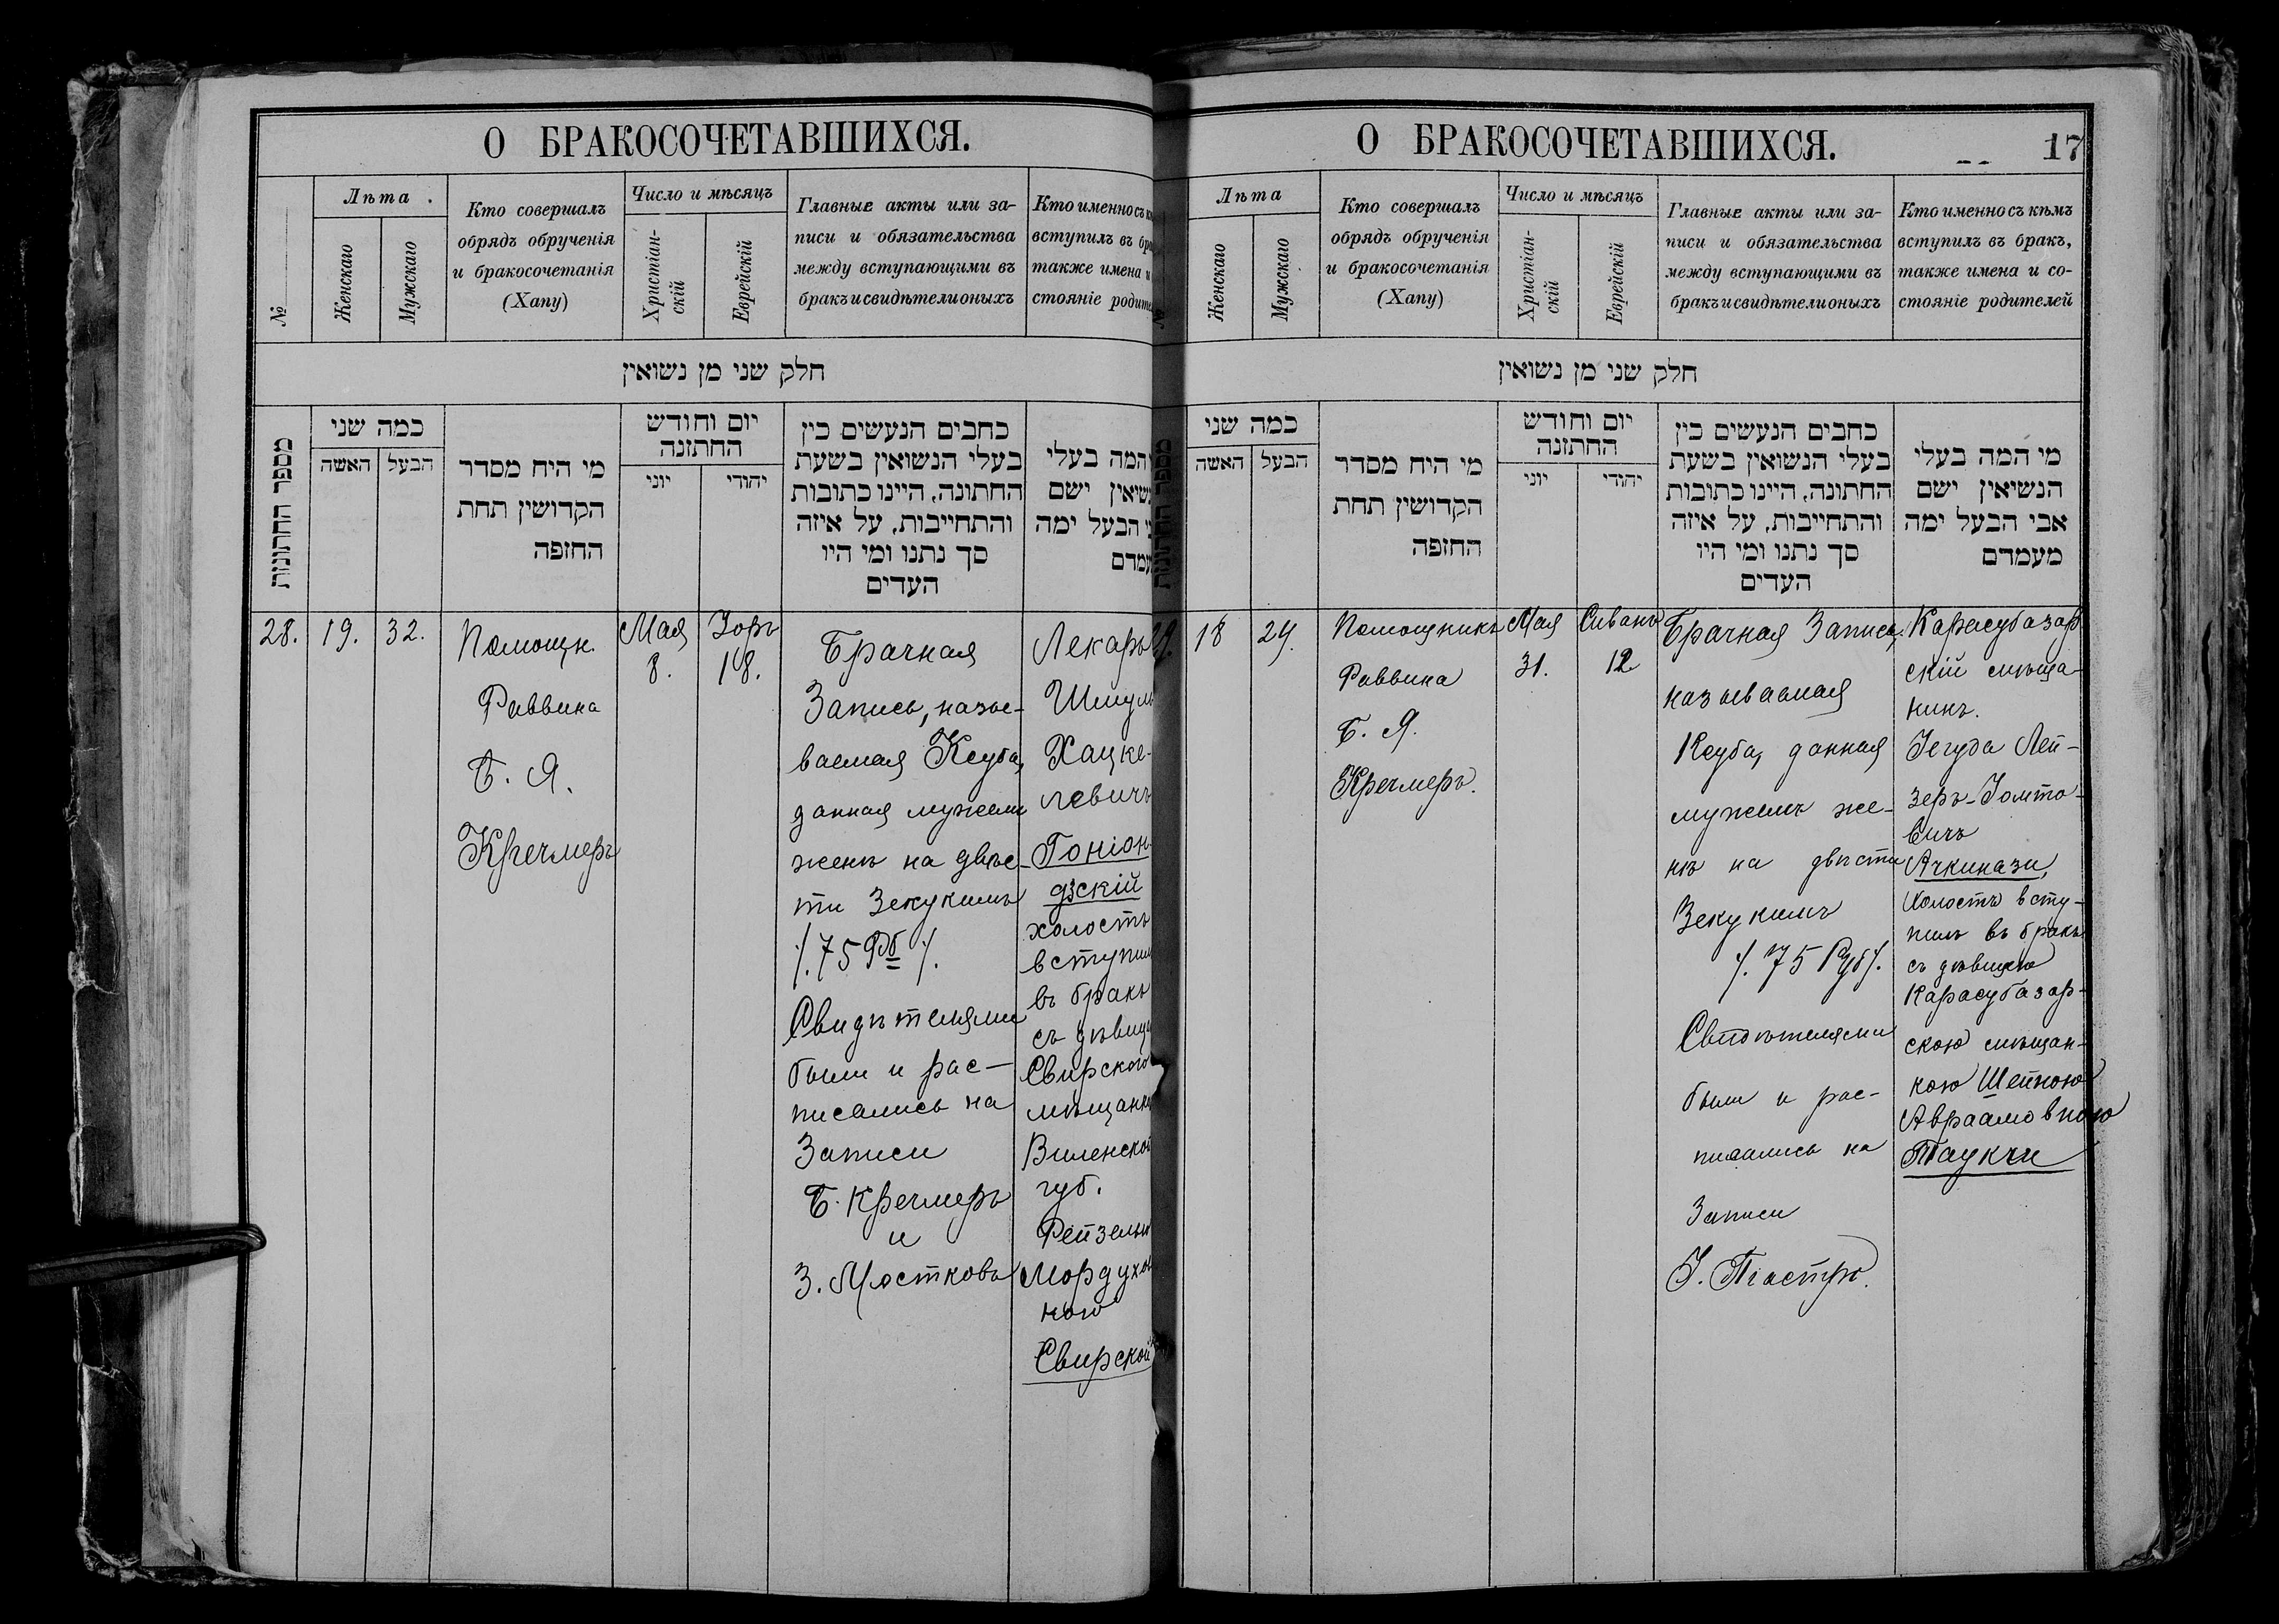 О БРАКОСОЧЕТАВШИХСЯ.
№
Лѣта
Женскаго
Мужскаго
Кто совершалъ
обрядъ обрученія
и бракосочетанія
(Хапу)
Число и мѣсяцъ
Христіан-
скій
Еврейскій
Главные акты или за-
писи и обязательства
между вступающими въ
бракъ и свидѣтели оныхъ
Кто именно съ
вступилъ въ
также имена и
стояніе
חלק שני מן נשואין
מספר החתונות
כמה שני
האשה
הבעל
מי היח מסדר
הקדושין תחת
החופה
יום וחודש
החתונה
יוני
יהודי
כחבים הנעשים כין
בעלי הנשואין בשעת
החתונה, היינו כתובות
והתחייבות, על איזה
סך נתנו ומי היו
העדים
המה בעלי
ישם
הבעל ימה
28.
19.
32.
Помощн.
Раввина
Б. Я.
Кречмеръ
Мая
8.
Іоръ
18.
Брачная
Запись, назы-
ваемая Ксуба,
данная мужемъ
женѣ на двѣс-
ти Зекукимъ
/. 75 Рб /.
Свидѣтелями
были и рас-
писались на
Записи
Б. Кречмеръ
и
З. Мостковъ
Лекарь
Шмуль
Хацке-
левичъ
Гоніон-
дзскій
холостъ
вступилъ
въ бракъ
съ дѣвицею
Свирскою
мѣщанкою
Виленской
губ.
Рейзелью
Мордухов
ною
Свирской
О БРАКОСОЧЕТАВШИХСЯ.
17
Лѣта
Женскаго
Мужскаго
Кто совершалъ
обрядъ обрученія
и бракосочетанія
(Хапу)
Число и мѣсяцъ
Христіан-
скій
Еврейскій
Главные акты или за-
писи и обязательства
между вступающими въ
бракъ и свидѣтели оныхъ
Кто именно съ кѣмъ
вступилъ въ бракъ,
также имена и со-
стояніе родителей
חלק שני מן נשואין
כמה שני
האשה
הבעל
מי היח מסדר
הקדושין תחת
החופה
יום וחודש
החתונה
יוני
יהודי
כחבים הנעשים כין
בעלי הנשואין בשעת
החתונה, היינו כתובות
והתחייבות, על איזה
סך נתנו ומי היו
העדים
מי המה בעלי
הנשיאין ישם
אבי הבעל ימה
מעמדם
18
29.
Помощникъ
Раввина
Б. Я.
Кречмеръ.
Мая
31.
Сиванъ
12
Брачная Запись,
называемая
Ксуба, данная
мужемъ же-
нѣ на двѣсти
Зекукимъ
/. 75 Руб /.
Свидѣтелями
были и рас-
писались на
Записи
І. Піастро.
Карасубазар
скій мѣща-
нинъ.
Іегуда Лей-
зеръ-Іомто-
вичъ
Ачкинази,
Холостъ всту-
пилъ въ бракъ
съ дѣвицею
Карасубазар-
скою мѣщан-
кою Шейною
Авраамовною
Таукчи